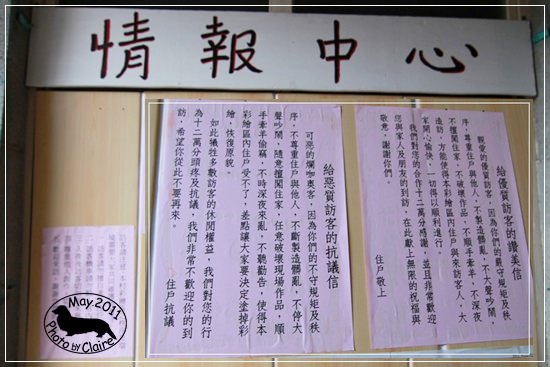 情報中心
給優質訪客的讚美信
親愛的優質訪客，因為你們的嚴守規矩及秩
序，尊重住戶與他人，不製造髒亂，不大聲吵鬧，
不擅闖住家，不破壞作品，不順手牽羊，不深夜
造訪，方能使得本彩繪區內住戶與來訪客人，大
家開心愉快，一切得以順利進行。
我們對您的合作十二萬分感謝，並且非常歡迎
您與家人及朋友的到訪，在此獻上無限的祝福與
敬意，謝謝你們。
住戶敬上
給惡質訪客的抗議信
可惡的爛咖奧客，因為你們的不守規矩及秩
序，不尊重住戶與他人，不斷製造髒亂，不停大
聲吵鬧，隨意擅闖住家，任意破壞現場作品，順
手牽羊偷竊，不時深夜來亂，不聽勸告，使得本
彩繪區內住戶受不了，差點讓大家要決定塗掉彩
繪，恢復原貌。
如此犧牲多數訪客的休閒權益，我們對您的行
為十二萬分頭疼及抗議，我們非常不歡迎你的到
訪，希望你從此不要再來。
住戶抗議
May.2011
Photo by Claire